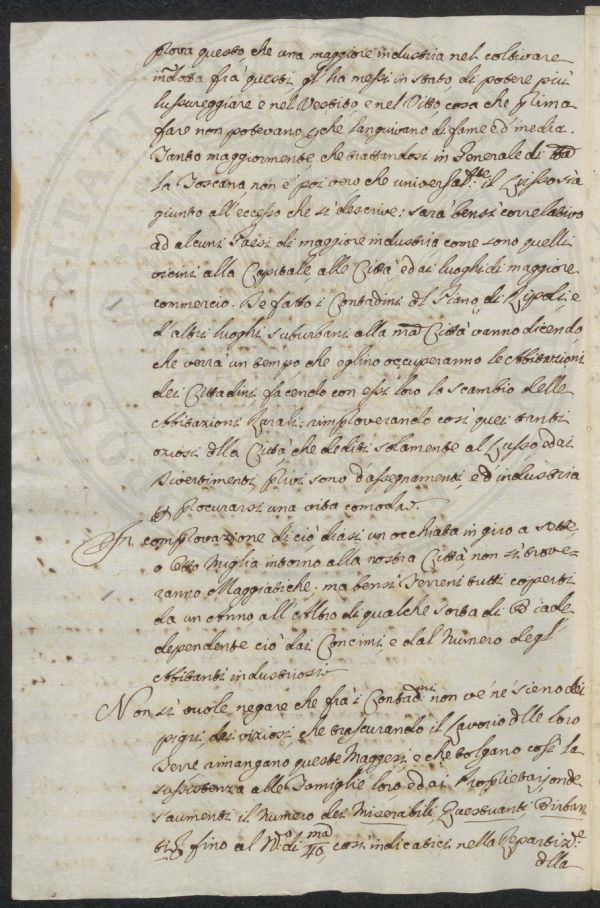 prova questo che una maggiore industria nel coltivare
indotta frà questi gl'ha messi in stato di potere più
lussureggiare e nel Vestito e nel Vitto, cosa che prima
fare non potevano, che languivano di fame ed inedia.
Tanto maggiormente, che trattandosi in Generale di tta
la Toscana non è poi vero, che universalmte il Lusso sia
giunto all'eccesso che si descrive: sarà bensì correlativo
ad alcuni Paesi di maggiore industria come sono quelli
vicini alla Capitale, alle Città ed ai luoghi di maggiore
commercio. Di fatto i Contadini del Piano di Ripoli, e
d'altri luoghi suburbani alla ma Città vanno dicendo,
che verrà un tempo che eglino occuperanno le Abitazioni
dei Cittadini, facendo con essi loro lo scambio delle
Abitazioni Rurali: rimproverando così quei tanti
oziosi dlla Città, che dediti solamente al Lusso ed ai
Divertimenti, privi sono d'assegnamenti, e d'industria
p procurarsi una vita comoda.
In comprovazione di ciò, diasi un occhiata in giro a sette,
o Otto Miglia intorno alla nostra Città non si trove-
ranno Maggiatiche; ma bensì Terreni tutti coperti
da un Anno all'Altro di qualche sorta di Biade
dependente ciò dai Concimi e dal Numero degl'
Abitanti industriosi.
Non si vuole negare che frà i Contadini non ve nè sieno dei
pigri, dei viziosi, che trascurando il Lavorio dlle loro
Terre rimangano queste Maggesi, e che tolgano così la
sussistenza alle Famiglie loro ed ai Proprietari, onde
s'aumenti il Numero dei Miserabili, Questuanti, Birban-
ti fino al No di così indicatici nella Repartize
dlla